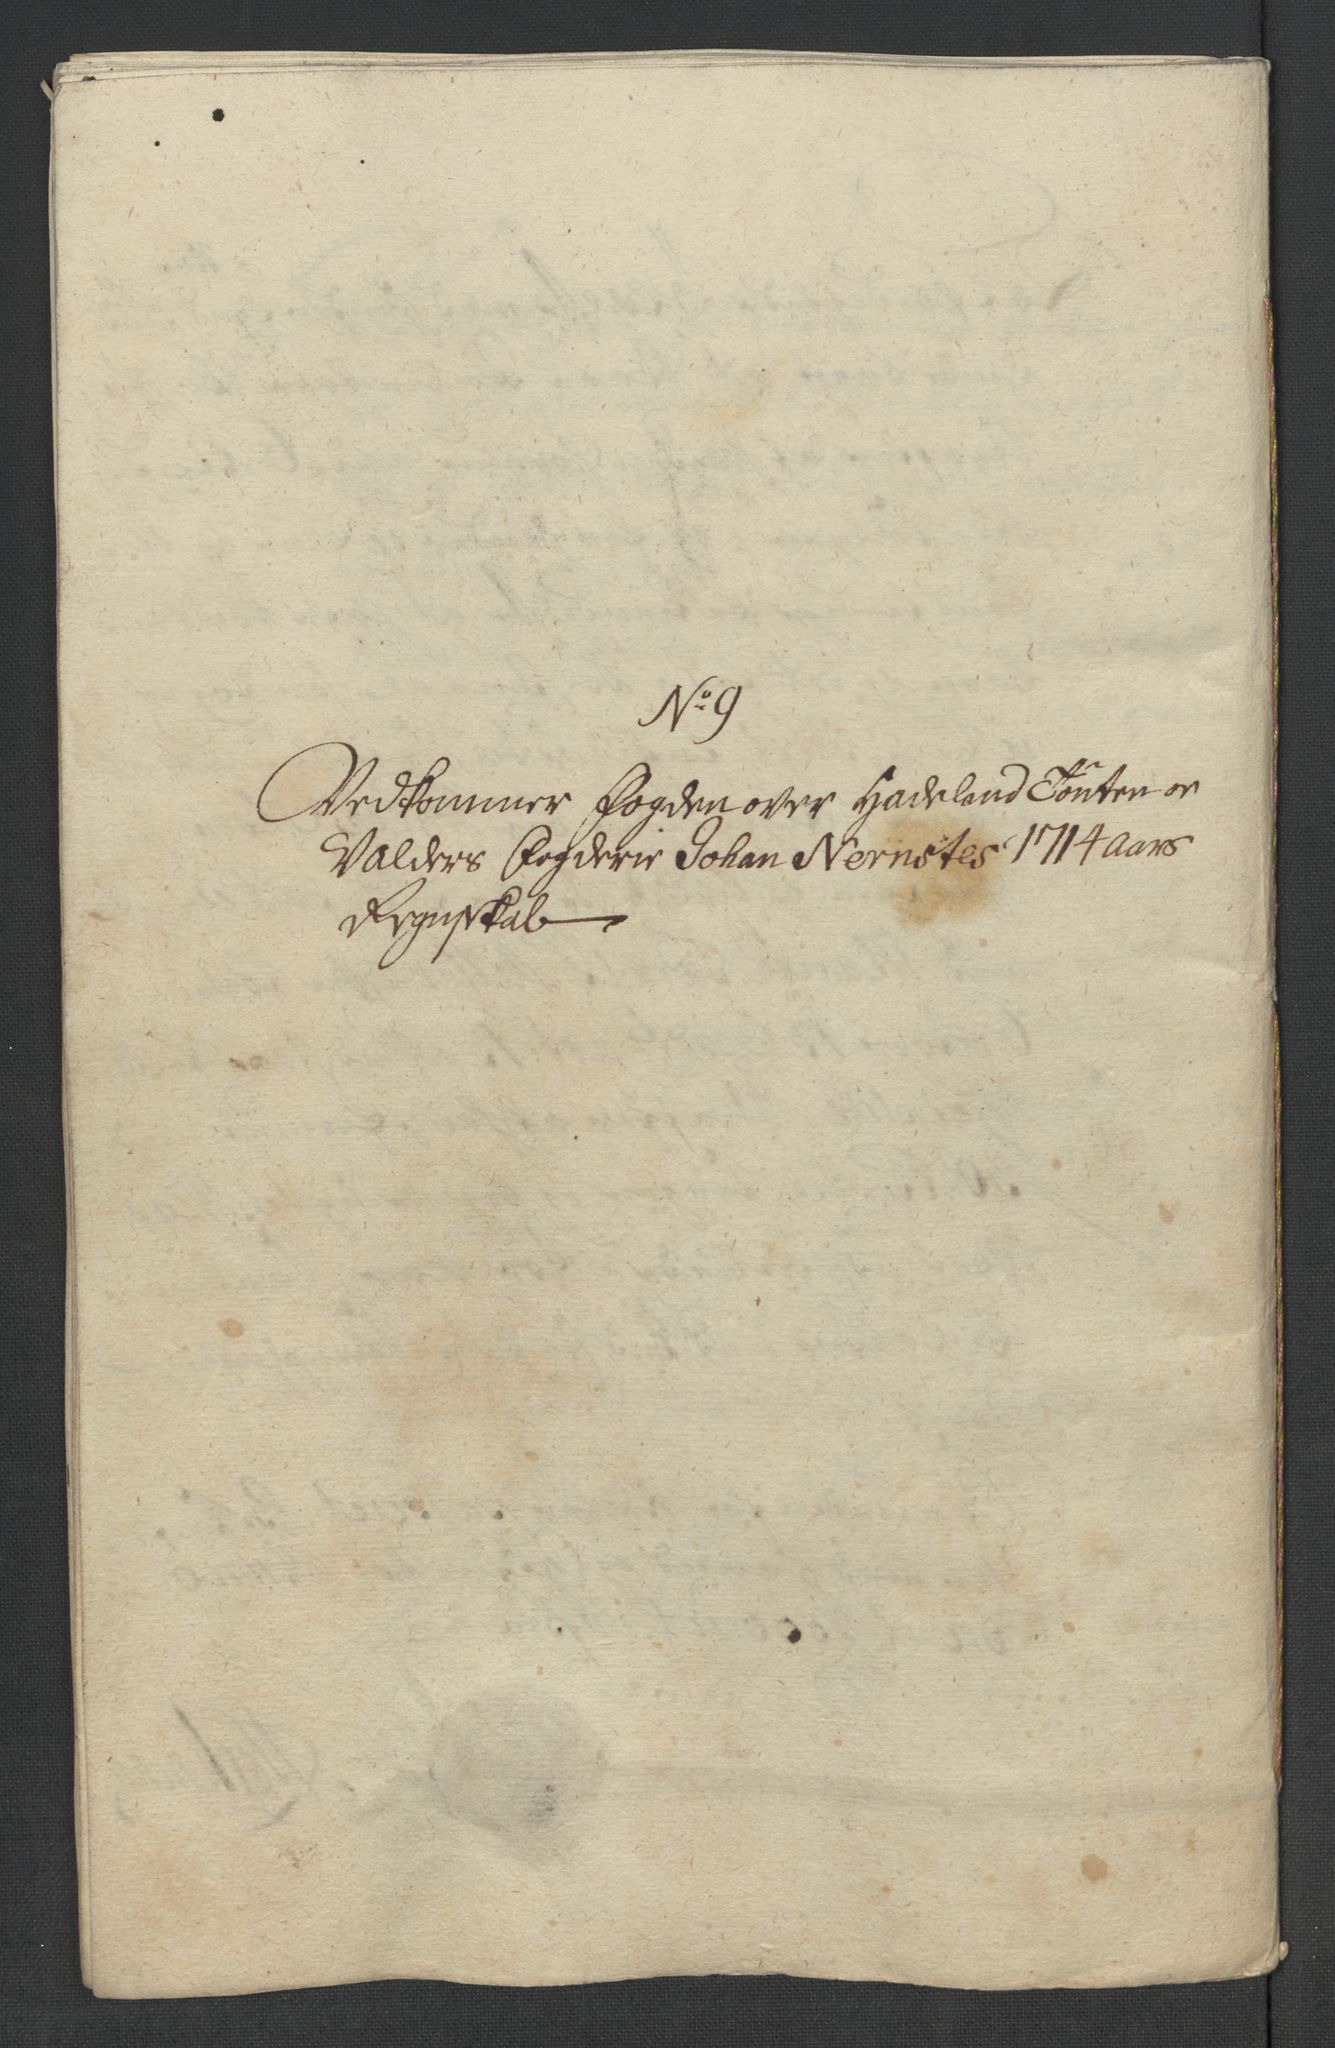 No 9
Vedkommer Fogden over Hadeland Touten oe
Valders Fogderie Johan Nernstes 1714 Aars
Regnskab